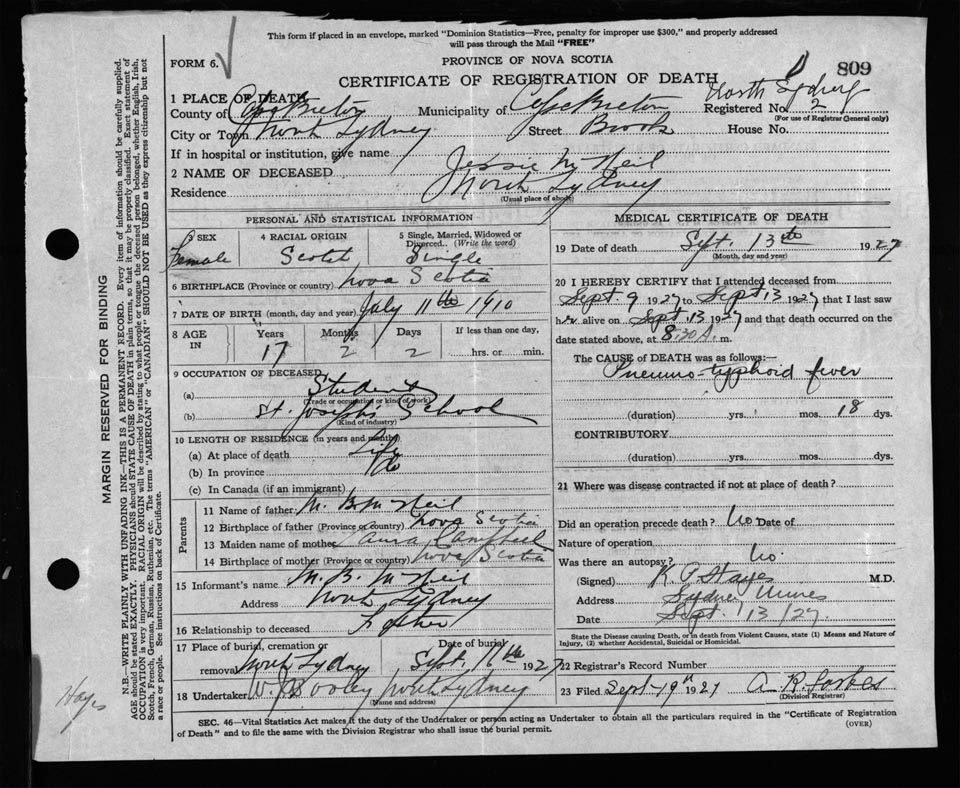 This form if placed in an envelope, marked "Dominion Statistics—Free, penalty for improper use $300," and properly addressed
will pass through the Mail "FREE"
FORM 6.
PROVINCE OF NOVA SCOTIA
CERTIFICATE OF REGISTRATION OF DEATH
809
North Sydney
1 PLACE OF DEATH
County of Cape Breton Municipality of Cape Breton Registered No. 2
(For use of Registrar General only)
City or Town North Sydney Street Brook House No.
If in hospital or institution, give name
2 NAME OF DECEASED Jessie McNeil
Residence North Sydney
(Usual place of abode)
PERSONAL AND STATISTICAL INFORMATION
3 SEX Female
4 RACIAL ORIGIN Scotch
5 Single, Married, Widowed or Divorced. (Write the word) Single
6 BIRTHPLACE (Province or country) Nova Scotia
7 DATE OF BIRTH (month, day and year) July 11th 1910
8 AGE IN Years 17 Months 2 Days 2 If less than one day, hrs. or min.
9 OCCUPATION OF DECEASED
(a) Student
(Trade or occupation or kind of work)
(b) St. Joseph's School
(Kind of industry)
10 LENGTH OF RESIDENCE (in years and months)
(a) At place of death Life
(b) In province do
(c) In Canada (if an immigrant)
Parents
11 Name of father M. B. McNeil
12 Birthplace of father (Province or country) Nova Scotia
13 Maiden name of mother Laura Campbell
14 Birthplace of mother (Province or country) Nova Scotia
15 Informant's name M. B. McNeil
Address North Sydney
16 Relationship to deceased Father
17 Place of burial, cremation or removal North Sydney
Date of burial Sept. 16th 1927
18 Undertaker W. J. Dooley North Sydney
(Name and address)
MEDICAL CERTIFICATE OF DEATH
19 Date of death Sept. 13th 1927
(Month, day and year)
20 I HEREBY CERTIFY that I attended deceased from
Sept. 9 1927 to Sept 13 1927 that I last saw
her alive on Sept. 13 1927 and that death occurred on the
date stated above, at 8:30 A. m.
The CAUSE of DEATH was as follows:—
Pneumo-typhoid fever
(duration) yrs. mos. 18 dys.
CONTRIBUTORY
(duration) yrs. mos. dys.
21 Where was disease contracted if not at place of death?
Did an operation precede death? No Date of
Nature of operation
Was there an autopsy? No.
(Signed) M.D.
Address Sydney Mines
Date Sept. 13/27
State the Disease causing Death, or in death from Violent Causes, state (1) Means and Nature
of Injury, (2) whether Accidental, Suicidal or Homicidal.
22 Registrar's Record Number
23 Filed Sept 19th 1927
(Division Registrar)
SEC. 46—Vital Statistics Act makes it the duty of the Undertaker or person acting as Undertaker to obtain all the particulars required in the "Certificate of Registration
of Death" and to file the same with the Division Registrar who shall issue the burial permit.
(OVER)
MARGIN RESERVED FOR BINDING
N.B.—WRITE PLAINLY WITH UNFADING INK—THIS IS A PERMANENT RECORD. Every item of information should be carefully supplied.
AGE should be stated EXACTLY. PHYSICIANS should STATE CAUSE OF DEATH in plain terms, so that it may be properly classified. Exact statement of
OCCUPATION is very important. RACIAL ORIGIN will be described by stating to what people or tongue the deceased person belonged, whether English, Irish,
Scotch, French, German, Russian, Ruthenian, etc. The terms "AMERICAN" or "CANADIAN" SHOULD NOT BE USED as they express citizenship but not
a race or people. See instructions on back of Certificate.